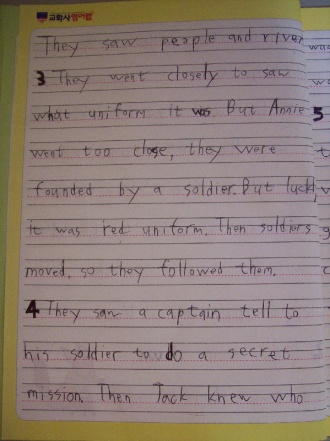 교학사
They saw people and river
3 They went closely to saw
what uniform it was. But Annie
went too close, they were
founded by a soldier. But luck
it was red uniform. Then soldiers
moved, so they followed them.
4 They saw a captain tell to
his soldier to do a secret
mission. Then Jack knew who
5